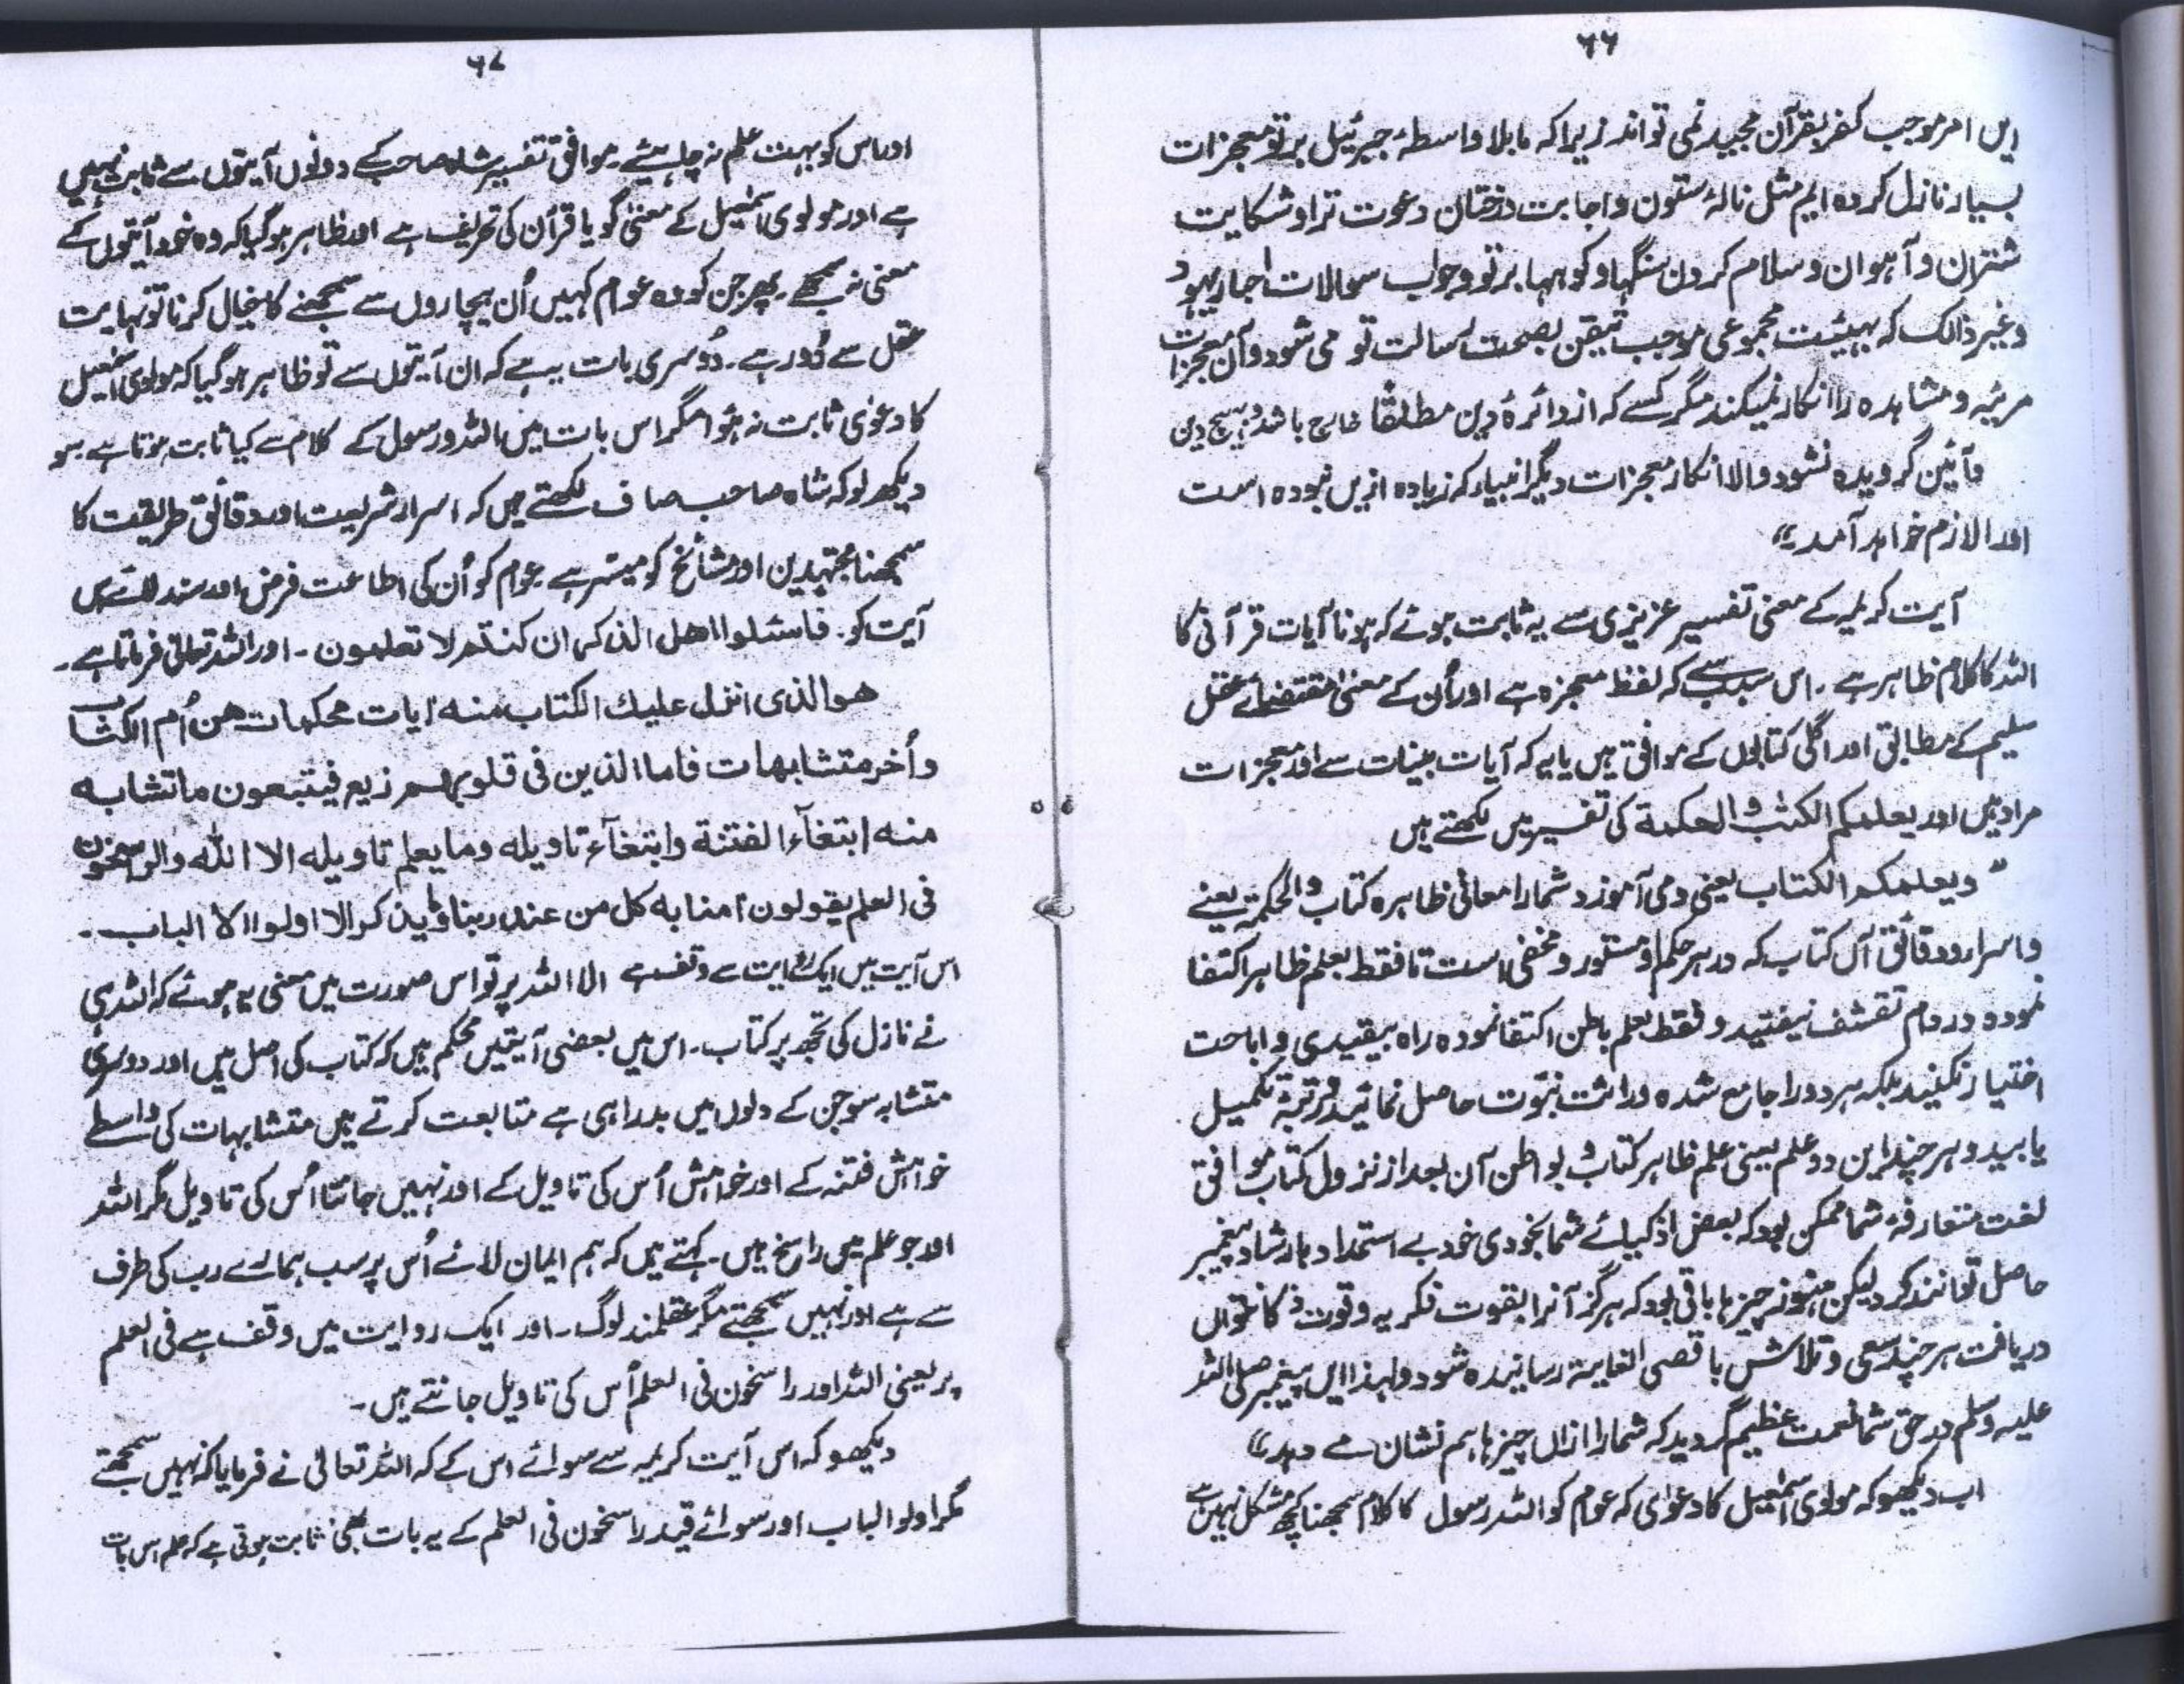 ۶۶
ایں امر موجب کفر بقرآن مجید نمی تواند زیرا کہ ما بلا واسطۂ جبرئیل بر تو معجزات
بسیار نازل کردہ ایم مثل نالۂ ستون و اجابت درختان دعوت ترا و شکایت
شتران و آہوان و سلام کردن سنگہا و کوہہا بر تو و جواب سوالات احبار یہود
و غیر ذالک کہ بہیئت مجموعی موجب تیقن بصحت رسالت تو می شود و آن معجزات
مرئیہ و مشاہدہ را انکار نمیکند مگر کسے کہ از دائرۂ دین مطلقًا خارج باشد و بہیچ دین
و آئین گرویدہ نشود و الا انکار معجزات دیگر انبیاء کہ زیادہ ازیں نبودہ است
اورا لازم خواہد آمد“
آیت کریمہ کے معنی تفسیر عزیزی سے یہ ثابت ہوئے کہ ہونا آیات قرآنی کا
اللہ کا کلام ظاہر ہے۔ اس سبب سے کہ لفظ معجزہ ہے اور اُن کے معنیٰ مقتضائے عقل
سلیم کے مطابق اور اگلی کتابوں کے موافق ہیں یا یہ کہ آیات بینات سے اور معجزات
مراد ہیں اور یعلمکم الکتٰب والحکمة کی تفسیر میں لکھتے ہیں
” ویعلمکم الکتاب یعنی و می آموزد شما را معانی ظاہرہ کتاب والحکمۃ یعنے
و اسرار و دقائق آں کتاب کہ در ہر حکم او مستور و مخفی است تا فقط بعلم ظاہر اکتفا
نمودہ در دام تقشف نیفتید و فقط بعلم باطن اکتفا نمودہ راہ بیقیدی و اباحت
اختیار نکنید بلکہ ہر دو را جامع شدہ وراثت نبوّت حاصل نمائید و مرتبۂ تکمیل
یابید و ہر چند این دو علم یعنی علم ظاہر کتاب و بواطن آن بعد از نزول کتاب موافق
لغت متعارفۂ شما ممکن بود کہ بعض اذکیائے شما بخودی خود بے استمداد بارشاد پیغمبر
حاصل توانند کرد لیکن ہنوز چیزہا باقی بود کہ ہرگز آنرا بقوت فکریہ و قوت ذکا نتواں
دریافت ہر چند سعی و تلاش باقصی الغایۃ رسانیدہ شود و لہذا ایں پیغمبر صلی اللہ
علیہ وسلم در حق شما نعمت عظیم گردید کہ شما را ازاں چیزہا ہم نشان مے دہد“
اب دیکھو کہ مولوی اسمٰعیل کا دعوٰی کہ عوام کو اللہ رسول کا کلام سمجھنا کچھ مشکل نہیں ہے
۶۷
اور اس کو بہت علم نہ چاہیئے۔ موافق تفسیر شاہ صاحب کے دونوں آیتوں سے ثابت نہیں
ہے اور مولوی اسمٰعیل کے معنیٰ گویا قرآن کی تحریف ہے اور ظاہر ہو گیا کہ وہ خود آیتوں کے
معنی نہ سمجھے۔ پھر جن کو وہ عوام کہیں اُن بیچاروں سے سمجھنے کا خیال کرنا تو نہایت
عقل سے دُور ہے۔ دُوسری بات یہ ہے کہ ان آیتوں سے تو ظاہر ہو گیا کہ مولوی اسمٰعیل
کا دعوٰی ثابت نہ ہُوا مگر اس بات میں اللہ ورسول کے کلام سے کیا ثابت ہوتا ہے سو
دیکھ لو کہ شاہ صاحب صاف لکھتے ہیں کہ اسرار شریعت اور دقائق طریقت کا
سمجھنا مجتہدین اور مشائخ کو میسّر ہے عوام کو اُن کی اطاعت فرض اور سند لاتے ہیں
آیت کو۔ فاسئلوا اهل الذکر ان کنتم لا تعلمون۔ اور اللہ تعالٰی فرماتا ہے۔
هو الذی انزل علیك الکتاب منه اٰیات محکمات هن اُم الکتاب
واُخر متشابهات فاما الذین فی قلوبهم زیع فیتبعون ما تشابه
منه ابتغآء الفتنة وابتغآء تاویله وما یعلم تاویله الا الله والراسخون
فی العلم یقولون اٰمنا به کل من عند ربنا وما یذکر الا اولوا الالباب۔
اس آیت میں ایک روایت سے وقف ہے الا اللہ پر تو اس صورت میں معنی یہ ہوئے کہ اللہ ہی
نے نازل کی تجھ پر کتاب۔ اس میں بعضی آیتیں محکم ہیں کہ کتاب کی اصل ہیں اور دوسری
متشابہ سو جن کے دلوں میں بدراہی ہے متابعت کرتے ہیں متشابہات کی واسطے
خواہش فتنہ کے اور خواہش اُس کی تاویل کے اور نہیں جانتا اُس کی تاویل مگر اللہ
اور جو علم میں راسخ ہیں۔ کہتے ہیں کہ ہم ایمان لائے اُس پر سب ہمارے رب کی طرف
سے ہے اور نہیں سمجھتے مگر عقلمند لوگ۔ اور ایک روایت میں وقف ہے فی العلم
پر یعنی اللہ اور راسخون فی العلم اُس کی تاویل جانتے ہیں۔
دیکھو کہ اس آیت کریمہ سے سوائے اس کے کہ اللہ تعالیٰ نے فرمایا کہ نہیں سمجھتے
مگر اولو الباب اور سوائے قید راسخون فی العلم کے یہ بات بھی ثابت ہوتی ہے کہ علم اس بات